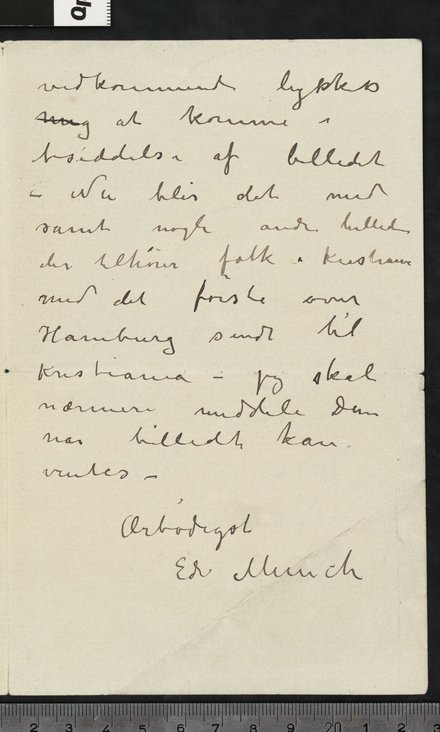 vedkommende lykkes
mig at komme i
besiddelse af billedet
– Nu blir det med
samt nogle andre billeder
der tilhører folk i Kristiania
med det første over
Hamburg sendt til
Kristiania – jeg skal
nærmere meddele Dem
når billedet kan
ventes –
Ærbødigst
Edv Munch